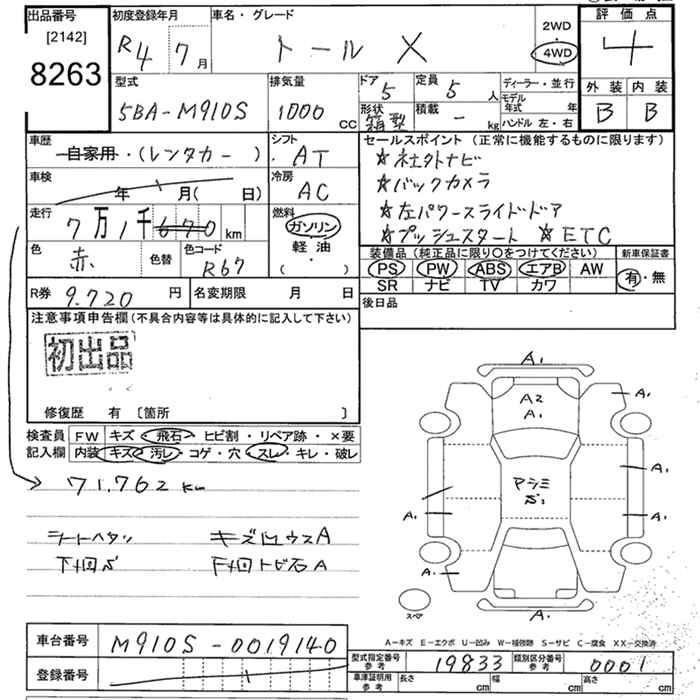 出品番号
[2142]
8263
初度登録年月
R4 7月
車名・グレード
トール X
2WD
・
4WD
評価点
4
外装 内装
B B
型式
5BA-M910S
排気量
1000 CC
ドア
5
形状
箱型
定員
5 人
積載
- kg
ディーラー・並行
モデル年式 年
ハンドル 左・右
車歴
自家用・(レンタカー)
シフト
AT
車検
年 月( 日)
冷房
AC
走行
7万1千670km
燃料
ガソリン
・
軽油
・
( )
色
赤
色替
色コード
R67
R券
9.720 円
名変期限 月 日
セールスポイント (正常に機能するものに限ります)
☆社外ナビ
☆バックカメラ
☆左パワースライドドア
☆プッシュスタート ☆ETC
装備品 (純正品に限り○をつけてください)
PS PW ABS エアB AW
SR ナビ TV カワ
新車保証書
有・無
後日品
注意事項申告欄(不具合内容等は具体的に記入して下さい)
初出品
修復歴 有 〔箇所 〕
検査員記入欄
FW キズ・飛石・ヒビ割・リペア跡・×要
内装 キズ・汚レ・コゲ・穴・スレ・キレ・破レ
→ 71.762 km
シートヘタリ キズ凹ウスA
下回S F廻トビ石A
A1
A2
A1
A1
アシミ
S1
A1
A1
A1
A1
A1
スペア
A-キズ E-エクボ U-凹み W-補修跡 S-サビ C-腐食 XX-交換済
車台番号
M910S-0019140
登録番号
型式指定番号
参考
19833
類別区分番号
参考
0001
車庫証明用
参考
長さ cm 幅 cm 高さ cm